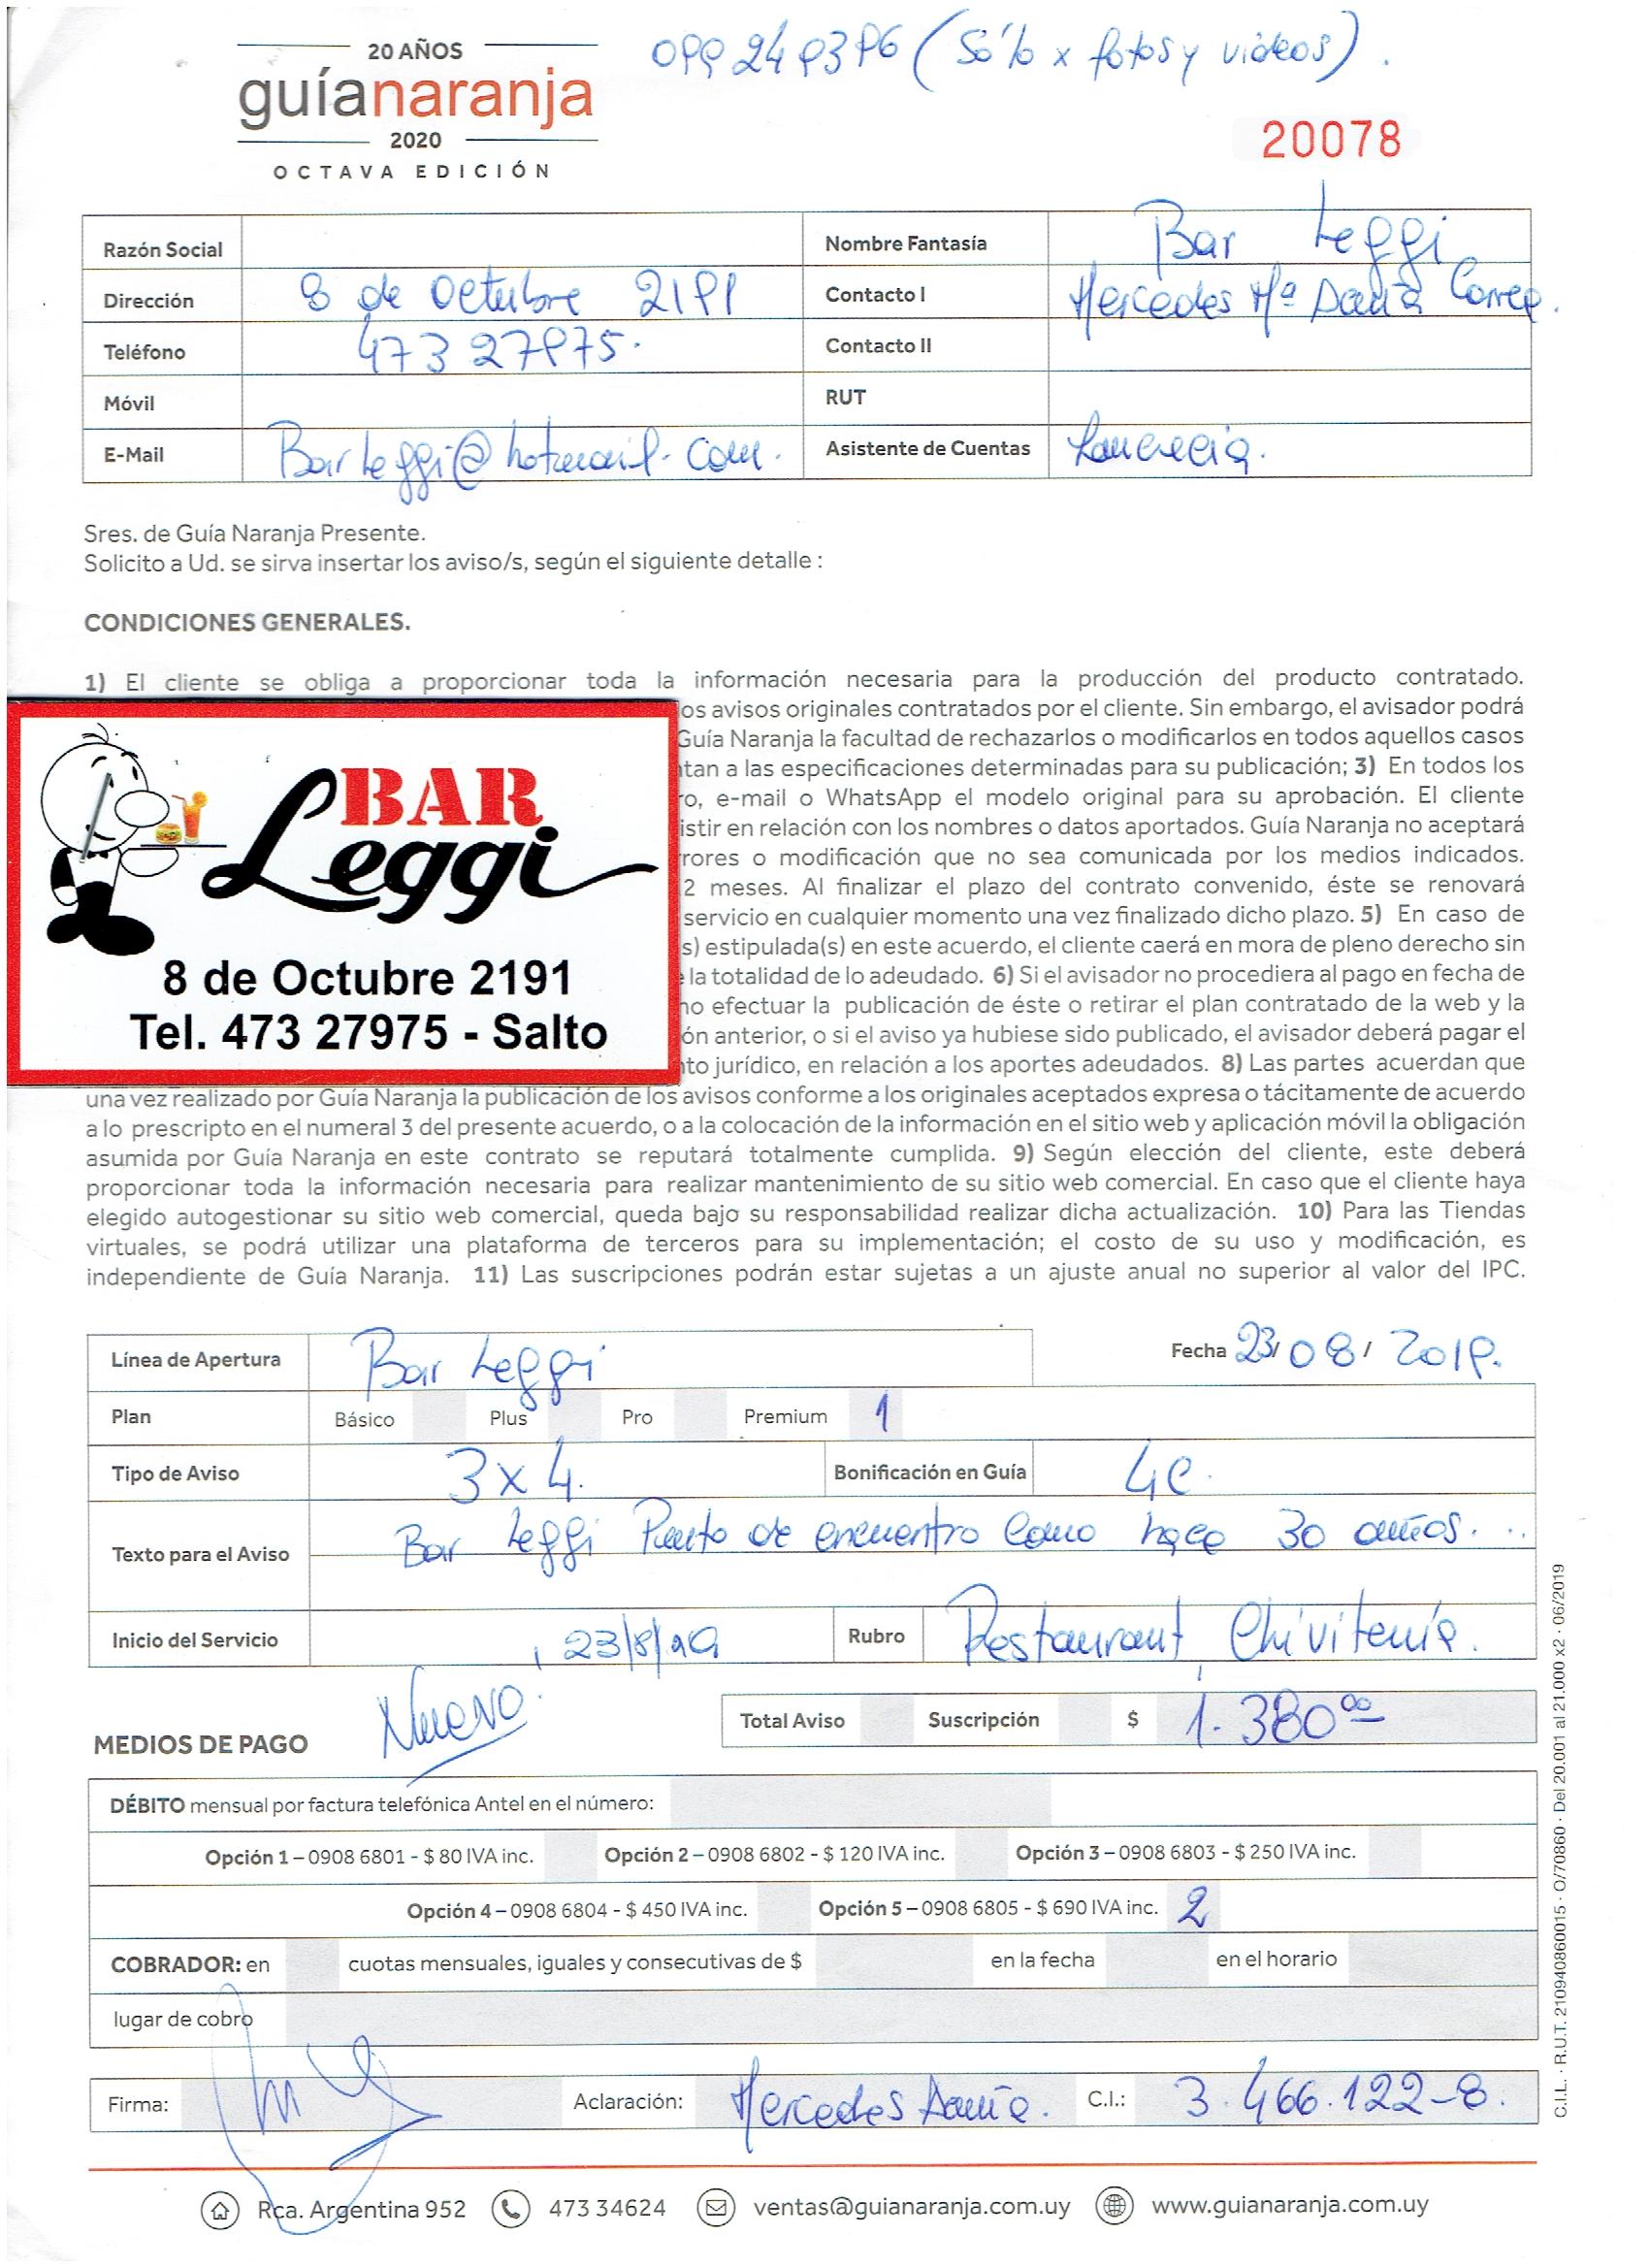 099 249396 (Sólo x fotos y videos).
20 AÑOS
guíanaranja
2020
OCTAVA EDICIÓN
20078
Razón Social
Nombre Fantasía Bar Leggi
Dirección 8 de Octubre 2191
Contacto I Mercedes Mª
Teléfono 473 27975.
Contacto II
Móvil
RUT
E-Mail BarLeggi@hotmail.com.
Asistente de Cuentas
Sres. de Guía Naranja Presente.
Solicito a Ud. se sirva insertar los aviso/s, según el siguiente detalle :
CONDICIONES GENERALES.
1) El cliente se obliga a proporcionar toda la información necesaria para la producción del producto contratado.
os avisos originales contratados por el cliente. Sin embargo, el avisador podrá
Guía Naranja la facultad de rechazarlos o modificarlos en todos aquellos casos
tan a las especificaciones determinadas para su publicación; 3) En todos los
ro, e-mail o WhatsApp el modelo original para su aprobación. El cliente
istir en relación con los nombres o datos aportados. Guía Naranja no aceptará
rores o modificación que no sea comunicada por los medios indicados.
2 meses. Al finalizar el plazo del contrato convenido, éste se renovará
servicio en cualquier momento una vez finalizado dicho plazo. 5) En caso de
s) estipulada(s) en este acuerdo, el cliente caerá en mora de pleno derecho sin
la totalidad de lo adeudado. 6) Si el avisador no procediera al pago en fecha de
no efectuar la publicación de éste o retirar el plan contratado de la web y la
ón anterior, o si el aviso ya hubiese sido publicado, el avisador deberá pagar el
to jurídico, en relación a los aportes adeudados. 8) Las partes acuerdan que
BAR
Leggi
8 de Octubre 2191
Tel. 473 27975 - Salto
una vez realizado por Guía Naranja la publicación de los avisos conforme a los originales aceptados expresa o tácitamente de acuerdo
a lo prescripto en el numeral 3 del presente acuerdo, o a la colocación de la información en el sitio web y aplicación móvil la obligación
asumida por Guía Naranja en este contrato se reputará totalmente cumplida. 9) Según elección del cliente, este deberá
proporcionar toda la información necesaria para realizar mantenimiento de su sitio web comercial. En caso que el cliente haya
elegido autogestionar su sitio web comercial, queda bajo su responsabilidad realizar dicha actualización. 10) Para las Tiendas
virtuales, se podrá utilizar una plataforma de terceros para su implementación; el costo de su uso y modificación, es
independiente de Guía Naranja. 11) Las suscripciones podrán estar sujetas a un ajuste anual no superior al valor del IPC.
Línea de Apertura Bar Leggi
Fecha 23/ 08 / 2019.
Plan Básico Plus Pro Premium 1
Tipo de Aviso 3 x 4.
Bonificación en Guía 4C.
Texto para el Aviso Bar Leggi Punto de encuentro como hace 30 años...
Inicio del Servicio 23/8/19
Rubro Restaurant Chivitería.
Nuevo
Total Aviso Suscripción $ 1.380 00
MEDIOS DE PAGO
DÉBITO mensual por factura telefónica Antel en el número:
Opción 1 – 0908 6801 - $ 80 IVA inc. Opción 2 – 0908 6802 - $ 120 IVA inc. Opción 3 – 0908 6803 - $ 250 IVA inc.
Opción 4 – 0908 6804 - $ 450 IVA inc. Opción 5 – 0908 6805 - $ 690 IVA inc. 2
COBRADOR: en cuotas mensuales, iguales y consecutivas de $ en la fecha en el horario
lugar de cobro
Firma:
Aclaración: Mercedes
C.I.: 3.466.122-8.
C.I.L. · R.U.T. 210940860015 · O/70860 · Del 20.001 al 21.000 x2 · 06/2019
Rca. Argentina 952 473 34624 ventas@guianaranja.com.uy www.guianaranja.com.uy